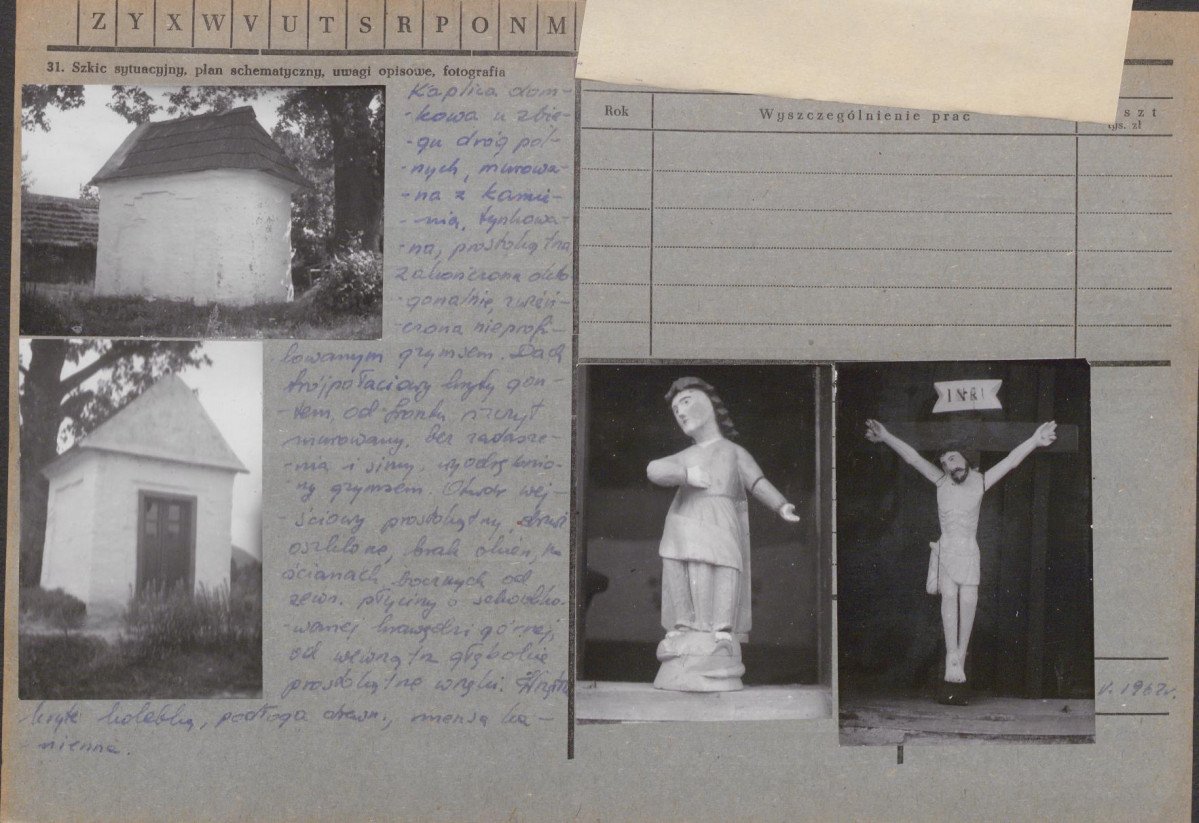 Z Y X W V U T S R P O N M
31. Szkic sytuacyjny, plan schematyczny, uwagi opisowe, fotografia
Kaplica dom-
-kowa u zbie-
-gu dróg pol-
-nych, murowa-
-na z kamie-
-nia, tynkowa-
-na, prostokątna
zakończona okto-
-gonalnie, zwień-
-czona nieprofi-
lowanym gzymsem. Dach
trójpołaciowy kryty gon-
-tem, od frontu szczyt
murowany, bez zadasze-
-nia i simy, wyodrębnio-
-ny gzymsem. Otwór wej-
-ściowy prostokątny, drzwi
oszklone, brak okien, na
ścianach bocznych od
zewn. płyciny o schodko-
-wanej krawędzi górnej,
od wewnątrz głębokie
prostokątne wnęki. Wnętrze
kryte kolebką, podłoga drewn., mensa ka-
-mienna.
Rok
Wyszczególnienie prac
szt
tys. zł
INRI
V. 1967r.